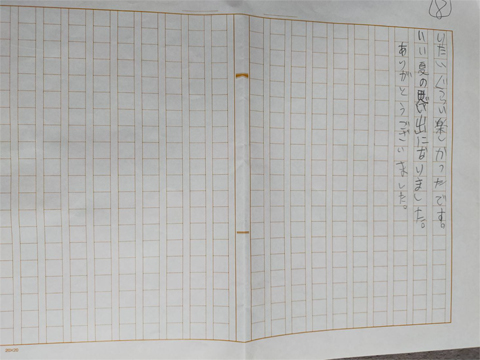 8
りたいくらい楽しかったです。
いい夏の思い出になりました。
ありがとうございました。
20×20